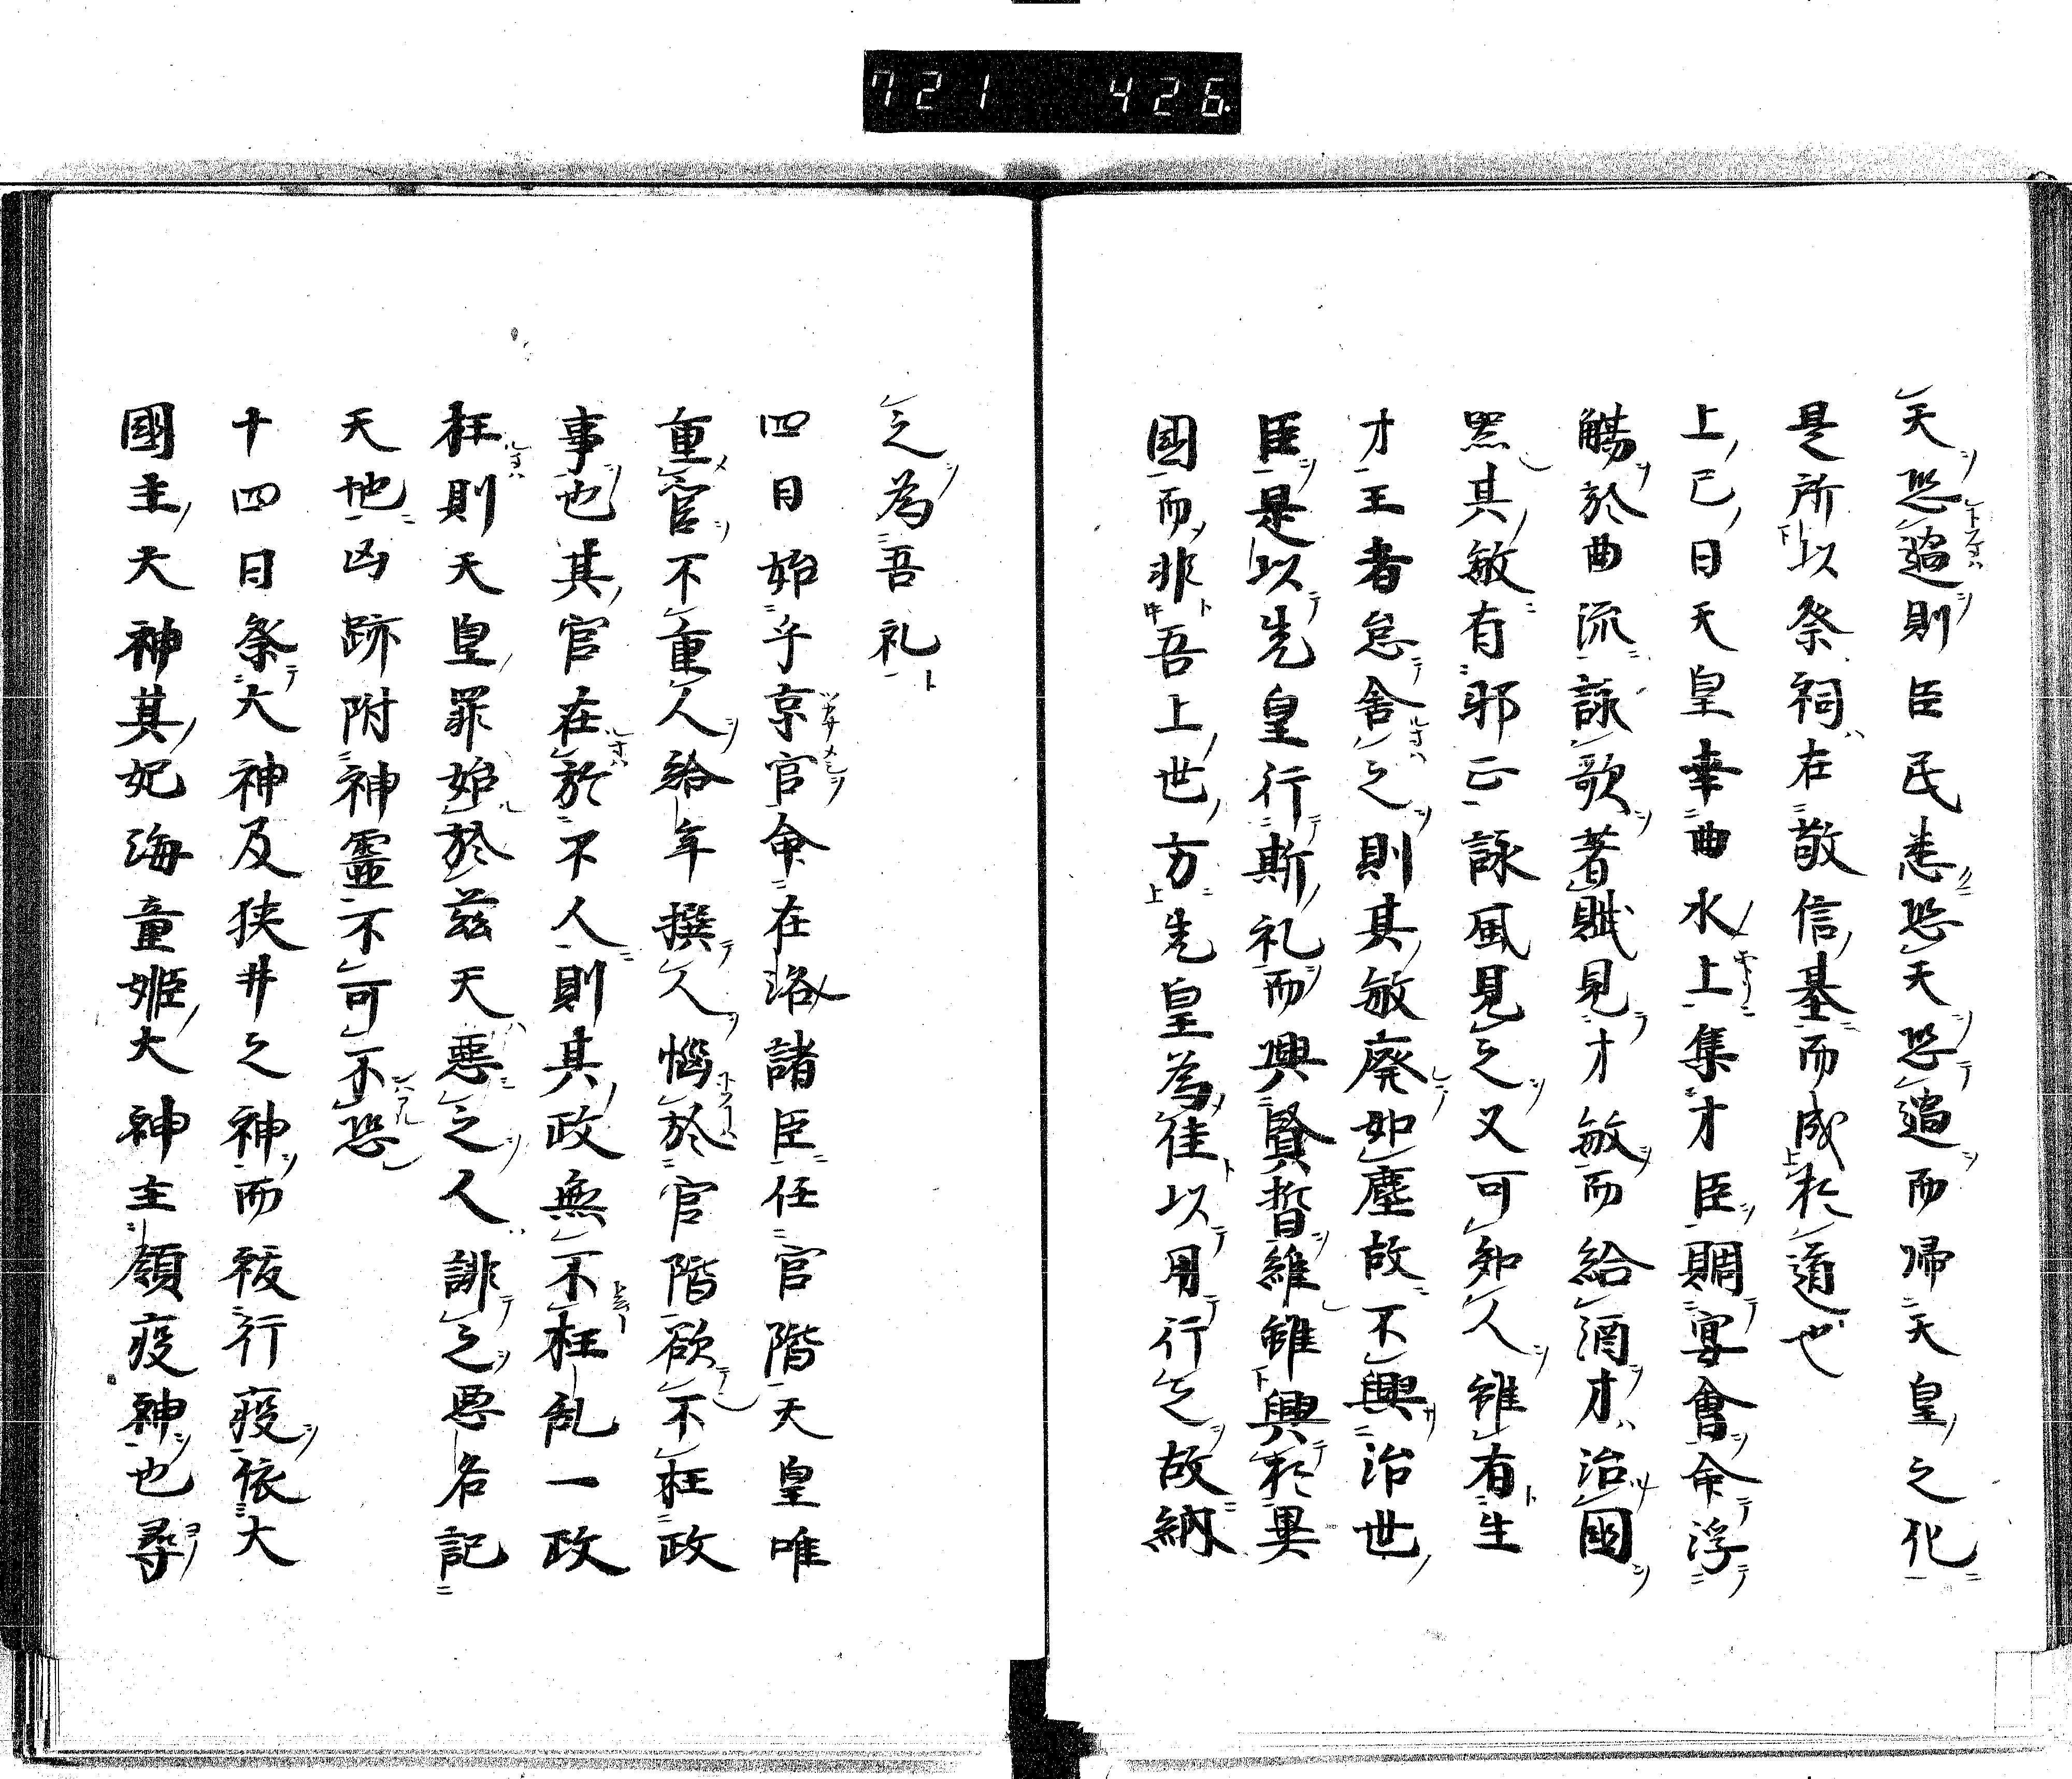 721 426
天恐過則臣民悉恐天恐過而帰天皇之化
是所以祭祠在敬信基而成於道也
上巳日天皇幸曲水上集才臣賜宴會命浮
觴於曲流詠歌著賦見才敏而給酒才治國
黙其敏有邪正詠風見之又可知人雖有生
才王者怠舍之則其敏廃如塵故不興治世
臣是以先皇行斯礼而興賢哲維雖興於異
國而非吾上世方先皇為佳以用行之故納
之為吾礼
四日始乎京官命在洛諸臣任官階天皇唯
重官不重人給年撰人惱於官階欲不枉政
事也其官在於不人則其政無不枉乱一政
枉則天皇罪始於茲天惡之人誹之惡名記
天地凶跡附神靈不可不恐
十四日祭大神及狭井之神而祓行疫依大
國主天神其妃海童姫大神主領疫神也尋